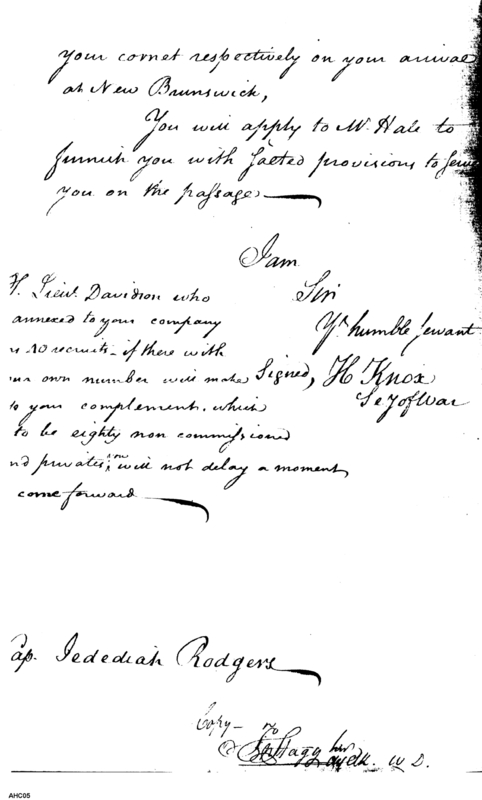 your cornet respectively on your arrival
at New Brunswick,
You will apply to Mr. Hale to
furnish you with salted provisions to serve
you on the passage
I am
Sir
Yr. humble servant
Signed, H Knox
Secy of War
Lieut. Davidson who
annexed to your company
recruits - if there with
own number will make
to your complement. which
to be eighty non commissioned
nd privates, you will not delay a moment
come forward
ap. Jedediah Rodgers
Copy -
Stagg
Clk. W D.
AHC05